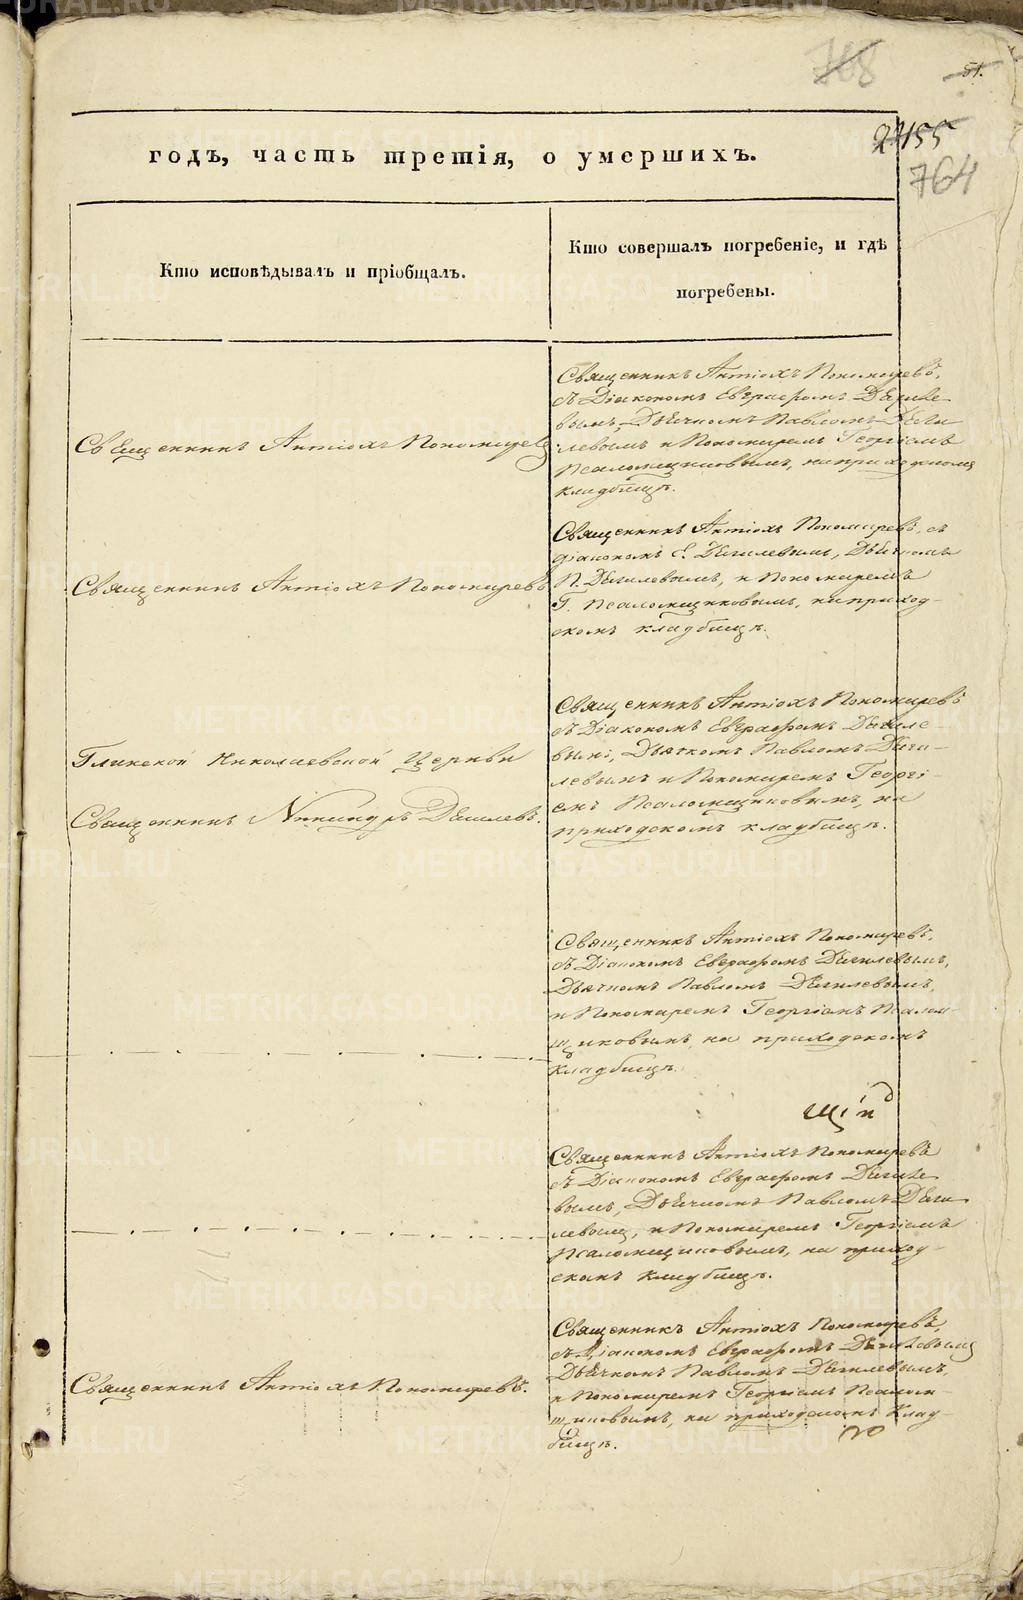 768
51.
27155
764
годъ, часть третія, о умершихъ.
Кто исповѣдывалъ и пріобщалъ.
Кто совершалъ погребеніе, и гдѣ
погребены.
Священникъ Антіохъ Пономаревъ
Священникъ Антіохъ Пономаревъ,
съ Діакономъ Евграфомъ Дягиле-
вымъ, Дьячкомъ Павломъ Дяги-
левымъ и Пономаремъ Георгіемъ
Псаломщиковымъ, на приходскомъ
кладбищѣ.
Священникъ Антіохъ Пономаревъ
Священникъ Антіохъ Пономаревъ, съ
діакономъ Е. Дягилевымъ, Дьячкомъ
П. Дягилевымъ, и Пономаремъ
Г. Псаломщиковымъ, на приход-
скомъ кладбищѣ.
Глинской Николаевской Церкви
Священникъ Никандръ Дягилевъ.
Священникъ Антіохъ Пономаревъ
съ Діакономъ Евграфомъ Дягиле-
вымъ, Дьячкомъ Павломъ Дяги-
левымъ и Пономаремъ Георгі-
емъ Псаломщиковымъ, на
приходскомъ кладбищѣ.
Священникъ Антіохъ Пономаревъ,
съ Діакономъ Евграфомъ Дягилевымъ,
Дьячкомъ Павломъ Дягилевымъ,
и Пономаремъ Георгіемъ Псалом-
щиковымъ, на приходскомъ
кладбищѣ.
Священникъ Антіохъ Пономаревъ
съ Діакономъ Евграфомъ Дягиле-
вымъ, Дьячкомъ Павломъ Дяги-
левымъ, и Пономаремъ Георгіемъ
Псаломщиковымъ, на приход-
скомъ кладбищѣ.
Священникъ Антіохъ Пономаревъ.
Священникъ Антіохъ Пономаревъ,
съ Діакономъ Евграфомъ Дягилевымъ
Дьячкомъ Павломъ Дягилевымъ,
и Пономаремъ Георгіемъ Псалом-
щиковымъ, на приходскомъ Клад-
бищѣ.
METRIKI.GASO-URAL.RU